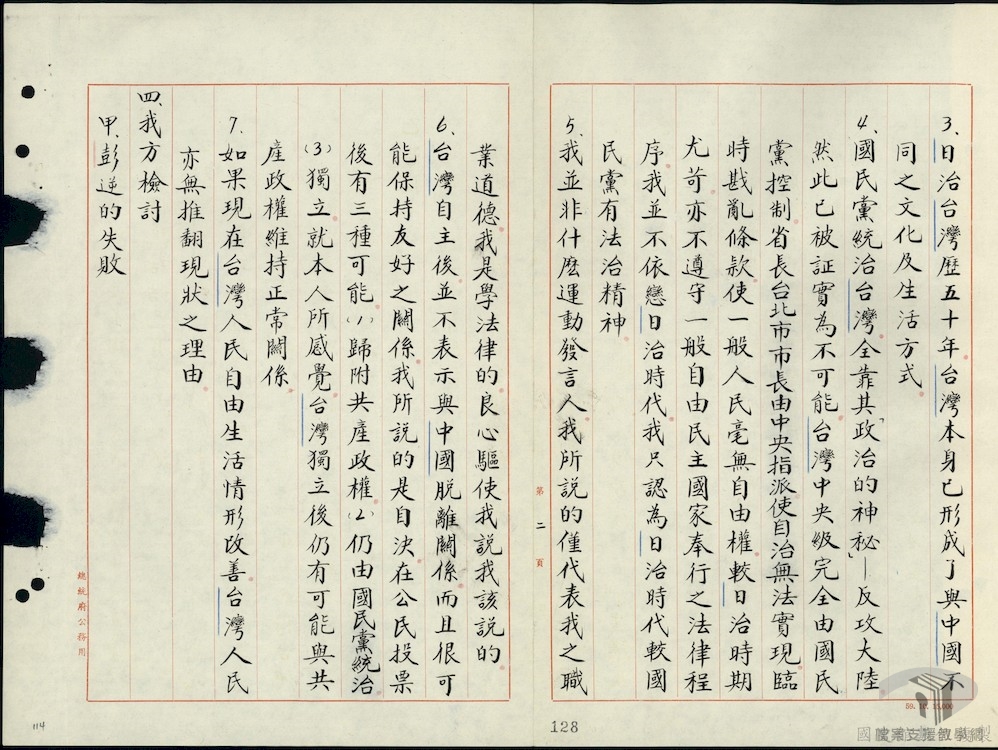 3、日治台灣歷五十年。台灣本身已形成了與中國不
同之文化及生活方式。
4、國民黨統治台灣。全靠其「政治的神秘」—反攻大陸
然此已被証實為不可能。台灣中央級完全由國民
黨控制。省長台北市市長由中央指派。使自治無法實現。臨
時戡亂條款。使一般人民毫無自由權。較日治時期
尤苛。亦不遵守一般自由民主國家奉行之法律程
序。我並不依戀日治時代。我只認為日治時代較國
民黨有法治精神。
5、我並非什麼運動發言人。我所說的僅代表我之職
第二頁
業道德。我是學法律的。良心驅使我說我該說的。
6、台灣自主後。並不表示與中國脫離關係。而且很可
能保持友好之關係。我所說的是自決。在公民投票
後有三種可能。(1)歸附共產政權。(2)仍由國民黨統治。
(3)獨立。就本人所感覺台灣獨立後仍有可能與共
產政權維持正常關係。
7、如果現在台灣人民自由生活情形改善。台灣人民
亦無推翻現狀之理由。
四、我方檢討
甲、彭逆的失敗
總統府公務用
59. 10. 15,000
128
114